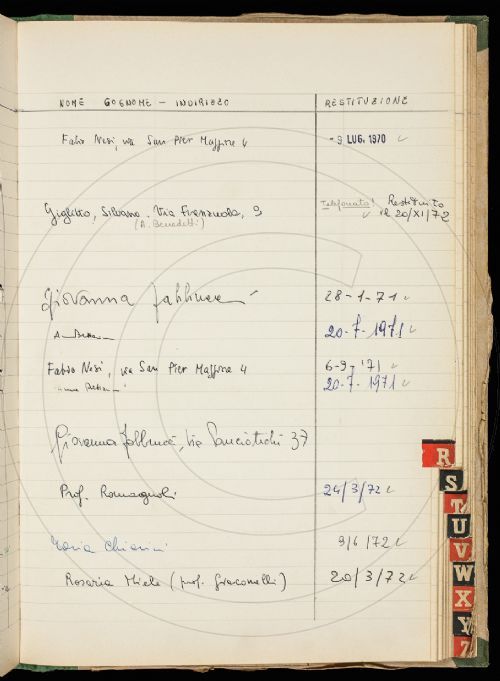 NOME COGNOME - INDIRIZZO RESTITUZIONE
Fabio Nisi, via San Pier Maggiore 4 - 9 LUG. 1970
Giglietto, Silvano. Via Firenzuola, 9 Telefonato! Restituito
(A. Benedetti) il 20/XI/72
Giovanna Fabbrucci 28-1-71
20-7-1971
Fabio Nisi, via San Pier Maggiore 4 6-9-'71
20-7-1971
Giovanna Fabbrucci, via 37
Prof. Romagnoli 24/3/72
Chiarini 9/6/72
Rosaria Miele (prof. Giacomelli) 20/3/72
R
S
T
U
V
W
X
Y
Z